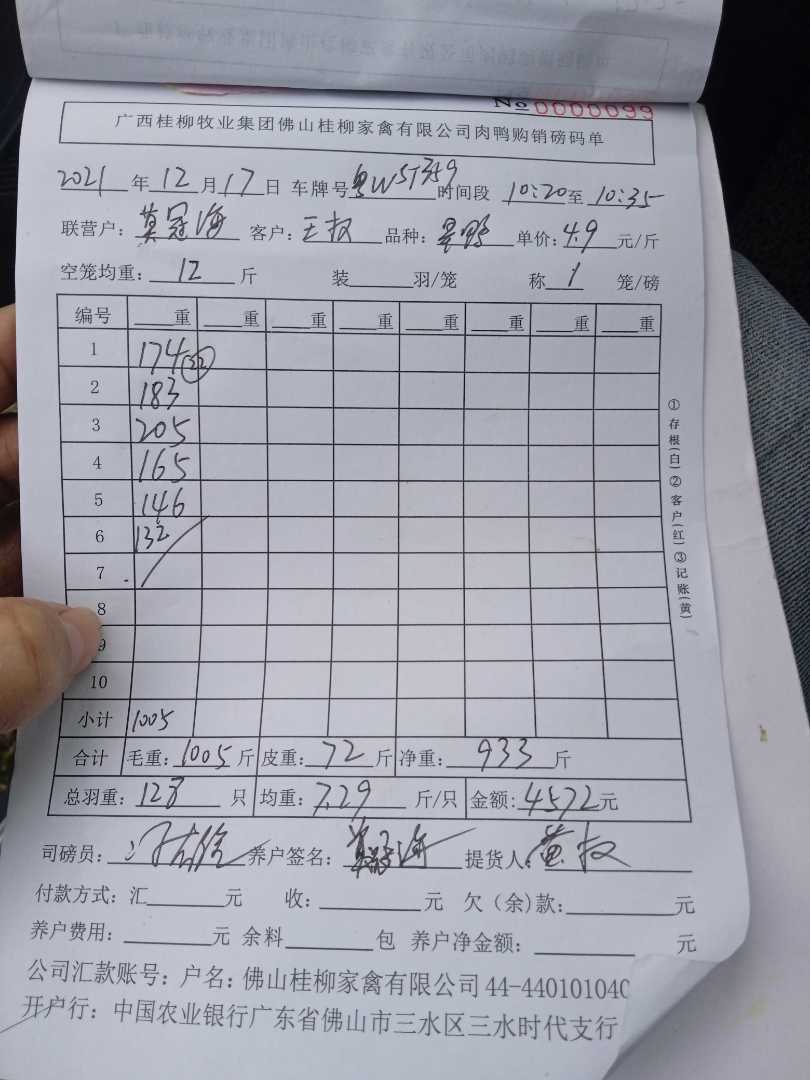 No 0000099
广西桂柳牧业集团佛山桂柳家禽有限公司肉鸭购销磅码单
2021年12月17日 车牌号粤WST359 时间段 10:20至10:35
联营户：莫冠海 客户：王权 品种： 单价：4.9元/斤
空笼均重：12斤 装 羽/笼 称1笼/磅
编号 重 重 重 重 重 重 重 重
1 174 (22)
2 183
3 205
4 165
5 146
6 132
7
8
9
10
小计 1005
合计 毛重：1005斤 皮重：72斤 净重：933斤
总羽重：128只 均重：7.29斤/只 金额：4572元
司磅员： 养户签名：莫冠海 提货人：黄权
付款方式：汇 元 收： 元 欠（余）款： 元
养户费用： 元 余料 包 养户净金额： 元
公司汇款账号：户名：佛山桂柳家禽有限公司 44-440101040
开户行：中国农业银行广东省佛山市三水区三水时代支行
①存根(白)②客户(红)③记账(黄)